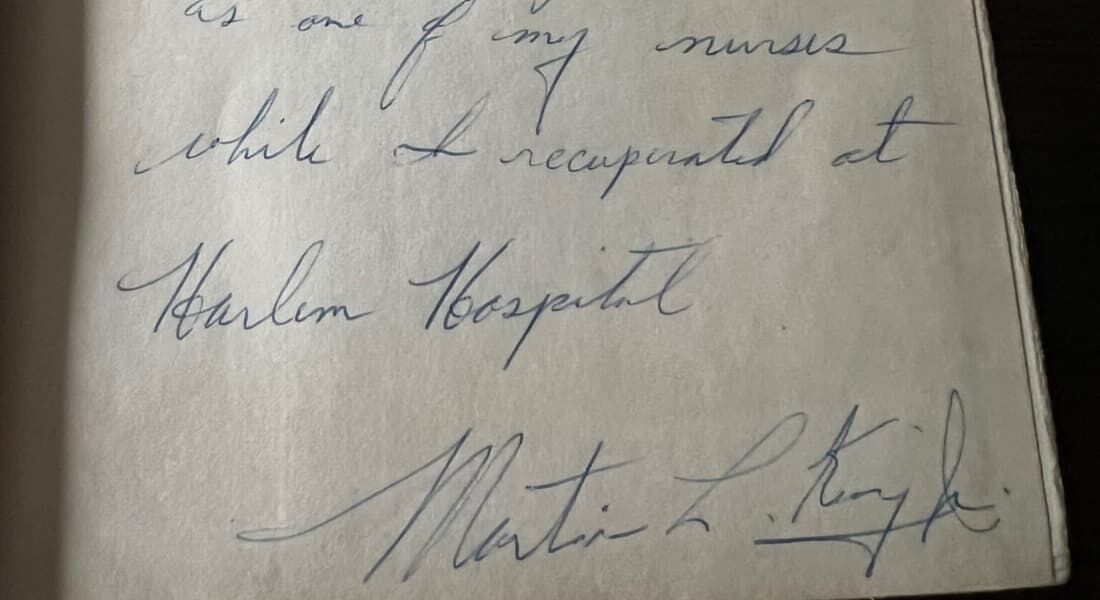 as one of my nurses
while I recuperated at
Harlem Hospital
Martin L. King Jr.